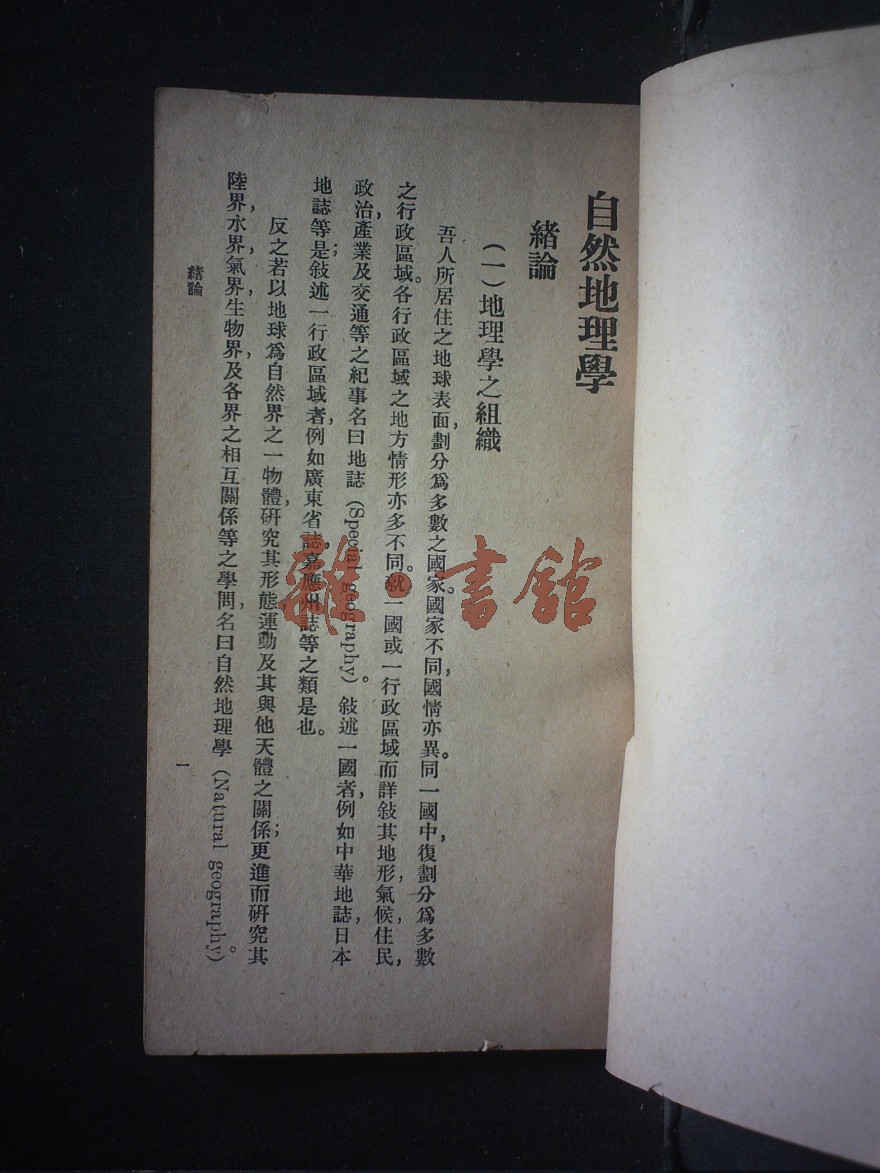 自然地理學
緒論
(一)地理學之組織
吾人所居住之地球表面,劃分爲多數之國家。國家不同,國情亦異。同一國中,復劃分爲多數
之行政區域。各行政區域之地方情形亦多不同。就一國或一行政區域而詳敍其地形,氣候,住民,
政治,產業及交通等之紀事名曰地誌(Special geography)。敍述一國者,例如中華地誌,日本
地誌等是;敍述一行政區域者,例如廣東省誌,嘉應州誌等之類是也。
反之若以地球爲自然界之一物體,研究其形態,運動及其與他天體之關係;更進而研究其
陸界,水界,氣界,生物界及各界之相互關係等之學問,名曰自然地理學(Natural geography)。
緒論
一
雜·書館